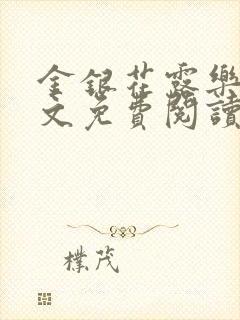 金銀花露樂
文免費閱讀
樸茂